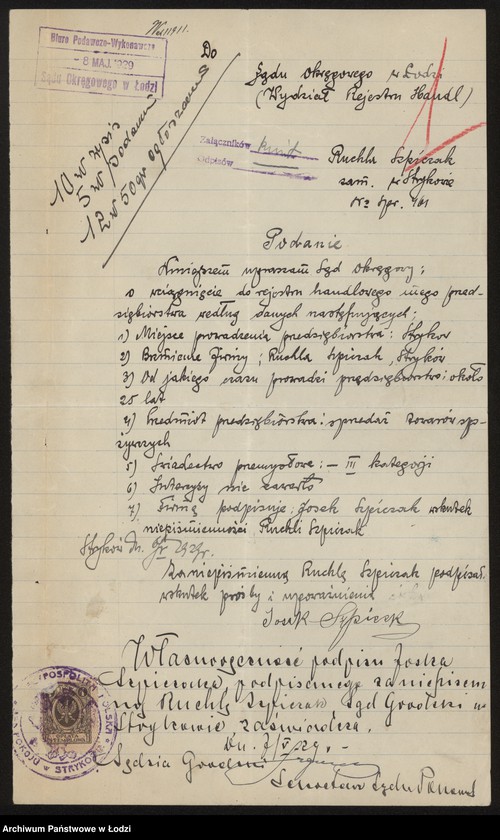 Biuro Podawczo-Wykonawcze
- 8 MAJ. 1929
Sądu Okręgowego w Łodzi
Do
Sądu Okręgowego w Łodzi
(Wydział Rejestru Handl)
10 w
5 w podaniu
12 w 50gr ogłoszenie
Załączników
Odpisów
Ruchla Szpiczak
zam. w Strykowie
No Spr. 161
Podanie
Niniejszem upraszam Sąd Okręgowy;
o wciągnięcie do rejestru handlowego mego przed-
siębiorstwa według danych następujących;
1) Miejsce prowadzenia przedsiębiorstwa: Stryków
2) Brzmienie Firmy; Ruchla Szpiczak Stryków
3) Od jakiego czasu prowadzi przedsiębiorstwo: około
25 lat
4) Przedmiot przedsiębiorstwa: sprzedaż towarów spo-
żywczych
5) Świadectwo przemysłowe: – III kategorji
6) Intercyzy nie zawarto
7) Firmę podpisuje: Josek Szpiczak wskutek
niepiśmienności Ruchli Szpiczak
Stryków dn. 1929r.
Za niepiśmienną Ruchlę Szpiczak podpisał
wskutek prośby i upoważnienia
Josek Szpiczak
Własnoręczność podpisu Joska
Szpiczaka podpisanego za niepiśmien
ną Ruchlę Szpiczak Sąd Grodzki w
Strykowie zaświadcza.
Dn. 7/V 29. –
Sędzia Grodzki
Sekretarz Sądu
RZECZPOSPOLITA POLSKA
POKOJU w STRYKOWIE
Archiwum Państwowe w Łodzi